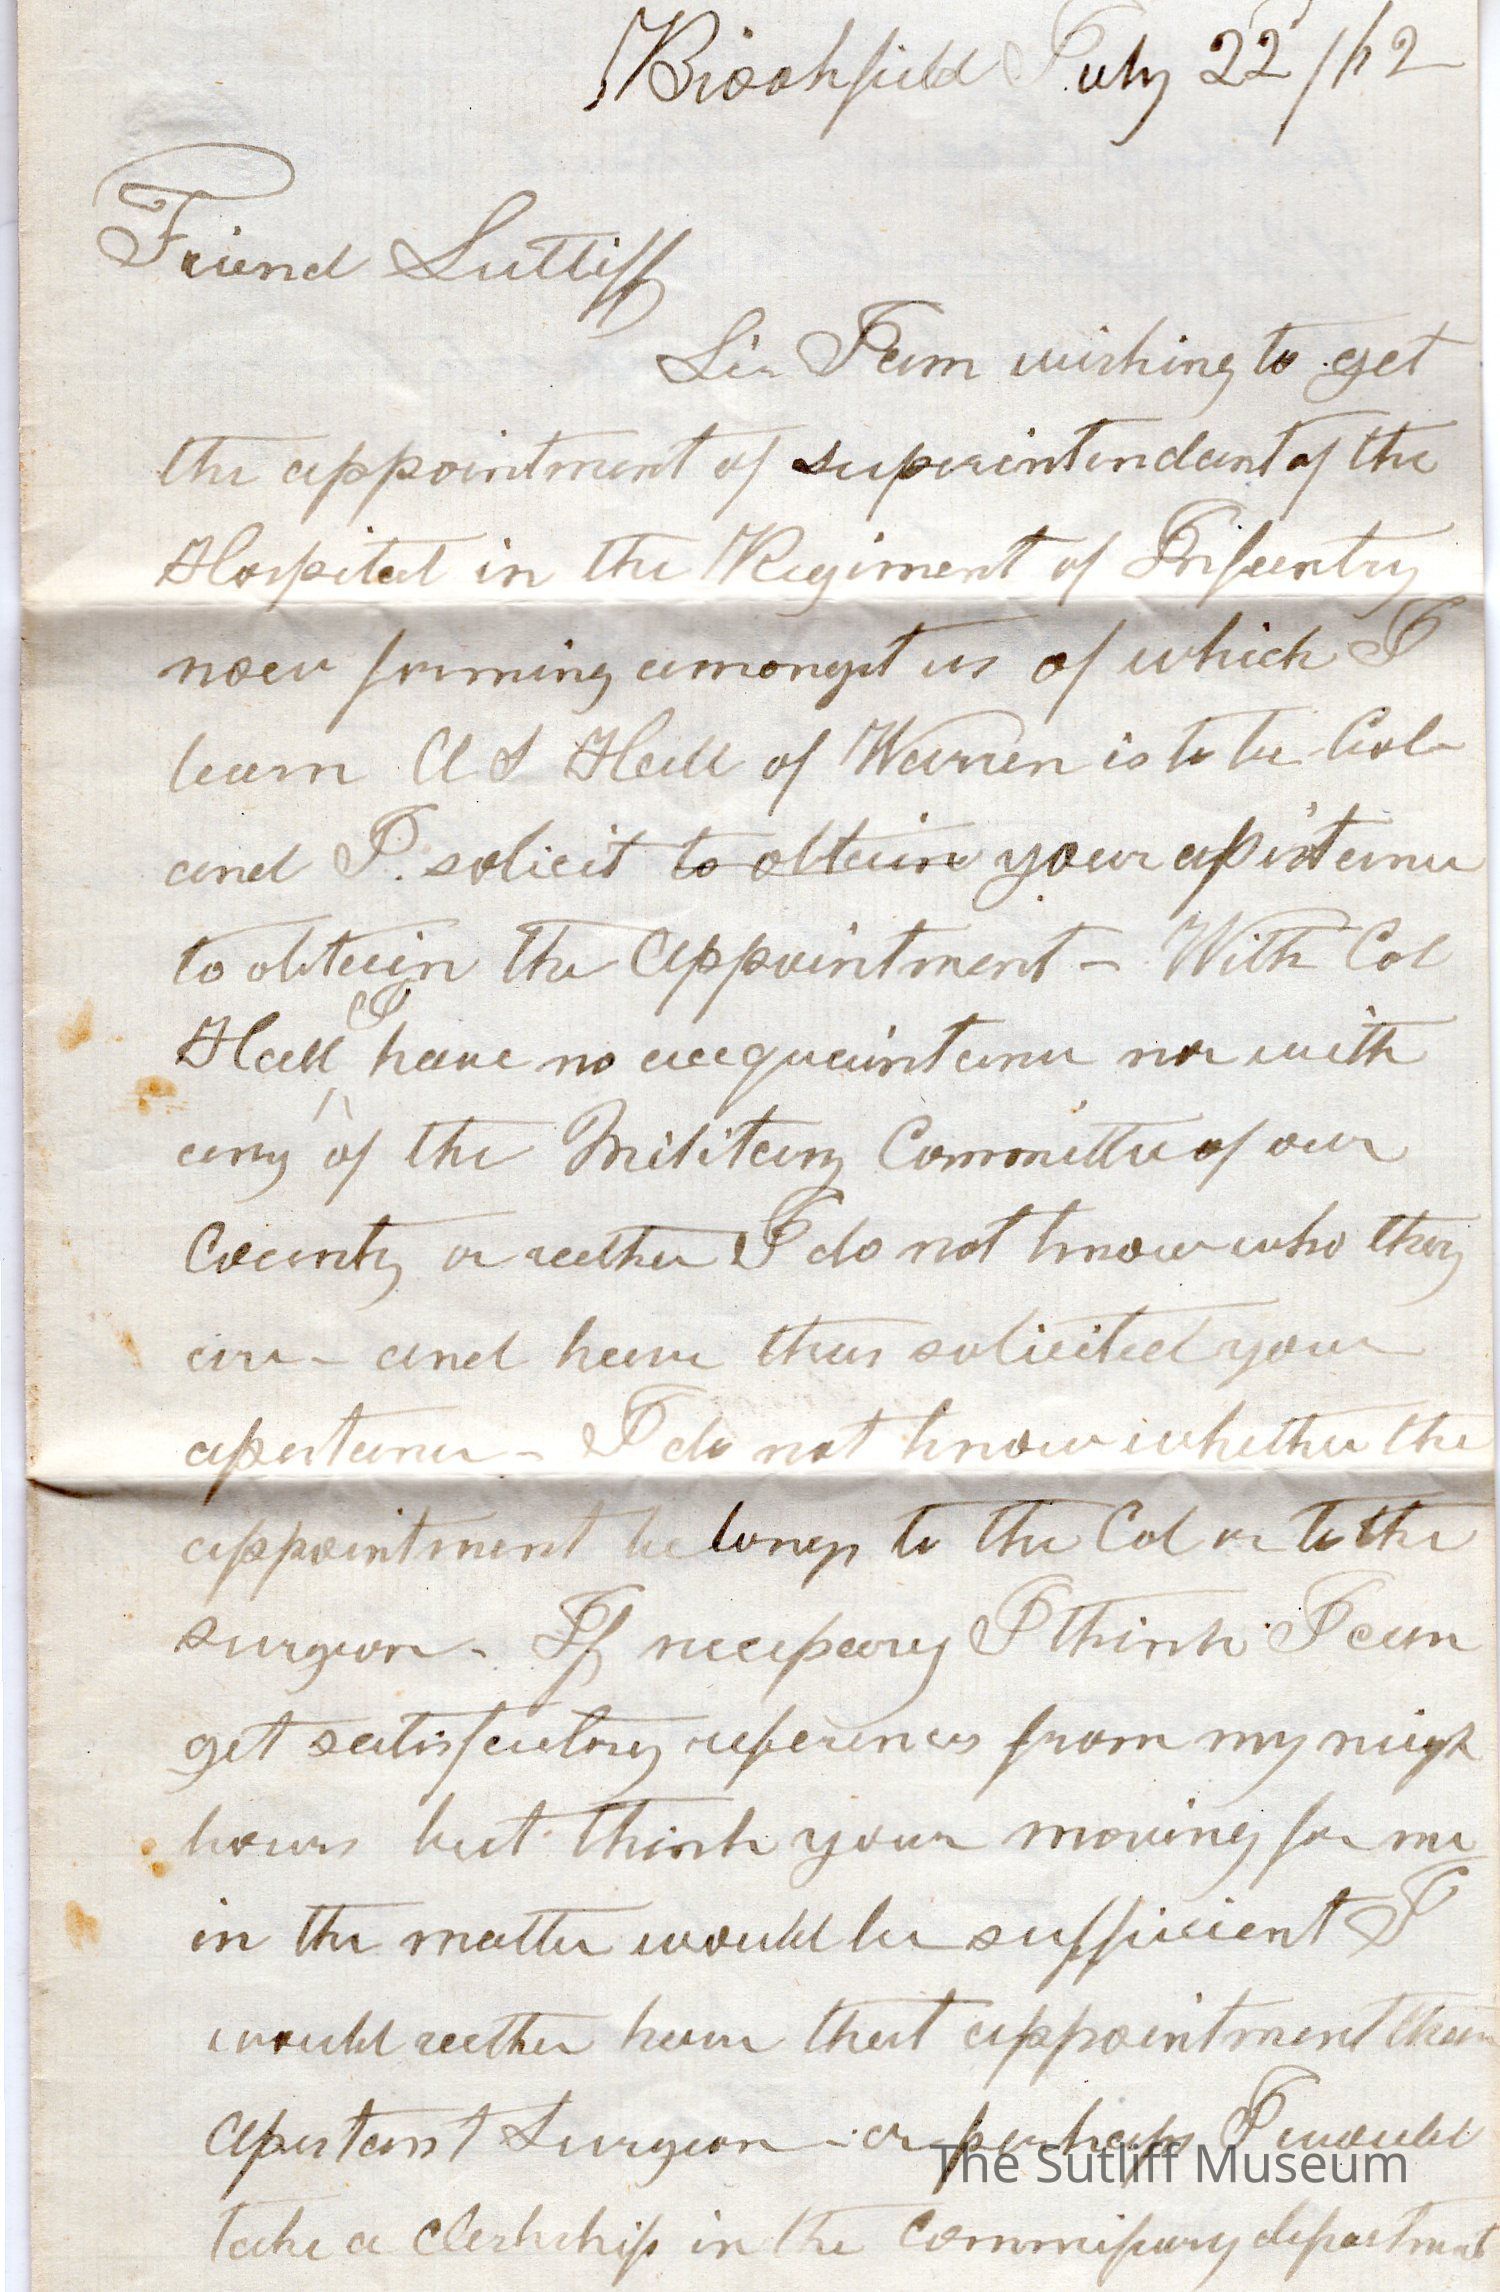 Brookfield July 22/62
Friend Sutliff
Sir I am wishing to get
the appointment of superintendant of the
Hospital in the Regiment of Infantry
now forming amongst us of which I
learn A S Hall of Warren is to be Col-
and I solicit to obtain your assistance
to obtain the Appointment - With Col
Hall I have no acequaintance nor with
any of the Military Committee of our
County or rather I do not know who they
are - and have thus solicited your
assistance - I do not know whether the
appointment belongs to the Col or to the
surgeon - If necessary I think I can
get satisfactory references from my neigh
bours but think your moving for me
in the matter would be sufficient I
would rather have that appointment than
Assistant Surgeon - or perhaps I would
The Sutliff Museum
take a clerkship in the commissary department